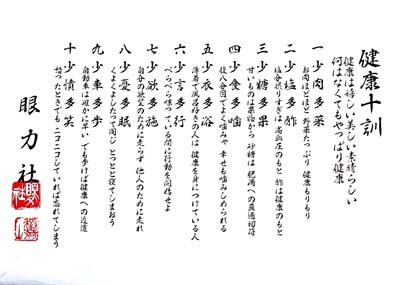 健康十訓
健康は嬉しい美しい素晴らしい
何はなくてもやっぱり健康
一 少肉多菜
お肉ほどほど 野菜たっぷり 健康もりもり
二 少塩多酢
塩分摂りすぎは高血圧のもと 酢は健康のもと
三 少糖多果
甘いものは果物から 砂糖は肥満への直通切符
四 少食多噛
腹八分目でよく噛みや 幸せも噛みしめられる
五 少衣多浴
薄着で風呂好きの人は 健康を身につけている人
六 少言多行
べらべら喋っている間に行動を開始せよ
七 少欲多施
自分の欲望のために走らず 他人のために走れ
八 少憂多眠
くよくよしたって同じ とっとと寝てしまおう
九 少車多歩
自動車は確かに早い でも歩けば健康への近道
十 少憤多笑
怒ったときでも ニコニコしていれば忘れてしまう
眼力社